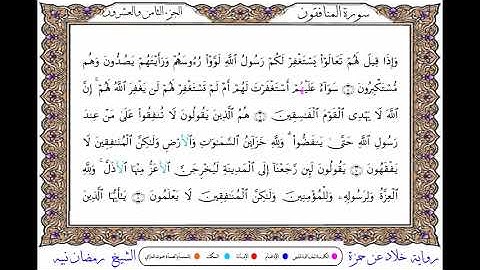 سورة المنافقون الجزء الثامن والعشرون
وَإِذَا قِيلَ لَهُمْ تَعَالَوْا۟ يَسْتَغْفِرْ لَكُمْ رَسُولُ ٱللَّهِ لَوَّوْا۟ رُءُوسَهُمْ وَرَأَيْتَهُمْ يَصُدُّونَ وَهُم
مُّسْتَكْبِرُونَ ۝ سَوَآءٌ عَلَيْهُمْ أَسْتَغْفَرْتَ لَهُمْ أَمْ لَمْ تَسْتَغْفِرْ لَهُمْ لَن يَغْفِرَ ٱللَّهُ لَهُمْ ۚ إِنَّ
ٱللَّهَ لَا يَهْدِى ٱلْقَوْمَ ٱلْفَـٰسِقِينَ ۝ هُمُ ٱلَّذِينَ يَقُولُونَ لَا تُنفِقُوا۟ عَلَىٰ مَنْ عِندَ
رَسُولِ ٱللَّهِ حَتَّىٰ يَنفَضُّوا۟ ۗ وَلِلَّهِ خَزَآئِنُ ٱلسَّمَـٰوَٰتِ وَٱلْأَرْضِ وَلَـٰكِنَّ ٱلْمُنَـٰفِقِينَ لَا
يَفْقَهُونَ ۝ يَقُولُونَ لَئِن رَّجَعْنَآ إِلَى ٱلْمَدِينَةِ لَيُخْرِجَنَّ ٱلْأَعَزُّ مِنْهَا ٱلْأَذَلَّ ۚ وَلِلَّهِ
ٱلْعِزَّةُ وَلِرَسُولِهِۦ وَلِلْمُؤْمِنِينَ وَلَـٰكِنَّ ٱلْمُنَـٰفِقِينَ لَا يَعْلَمُونَ ۝ يَـٰٓأَيُّهَا ٱلَّذِينَ
رواية خلاد عن حمزة الشيخ رمضان نبيه